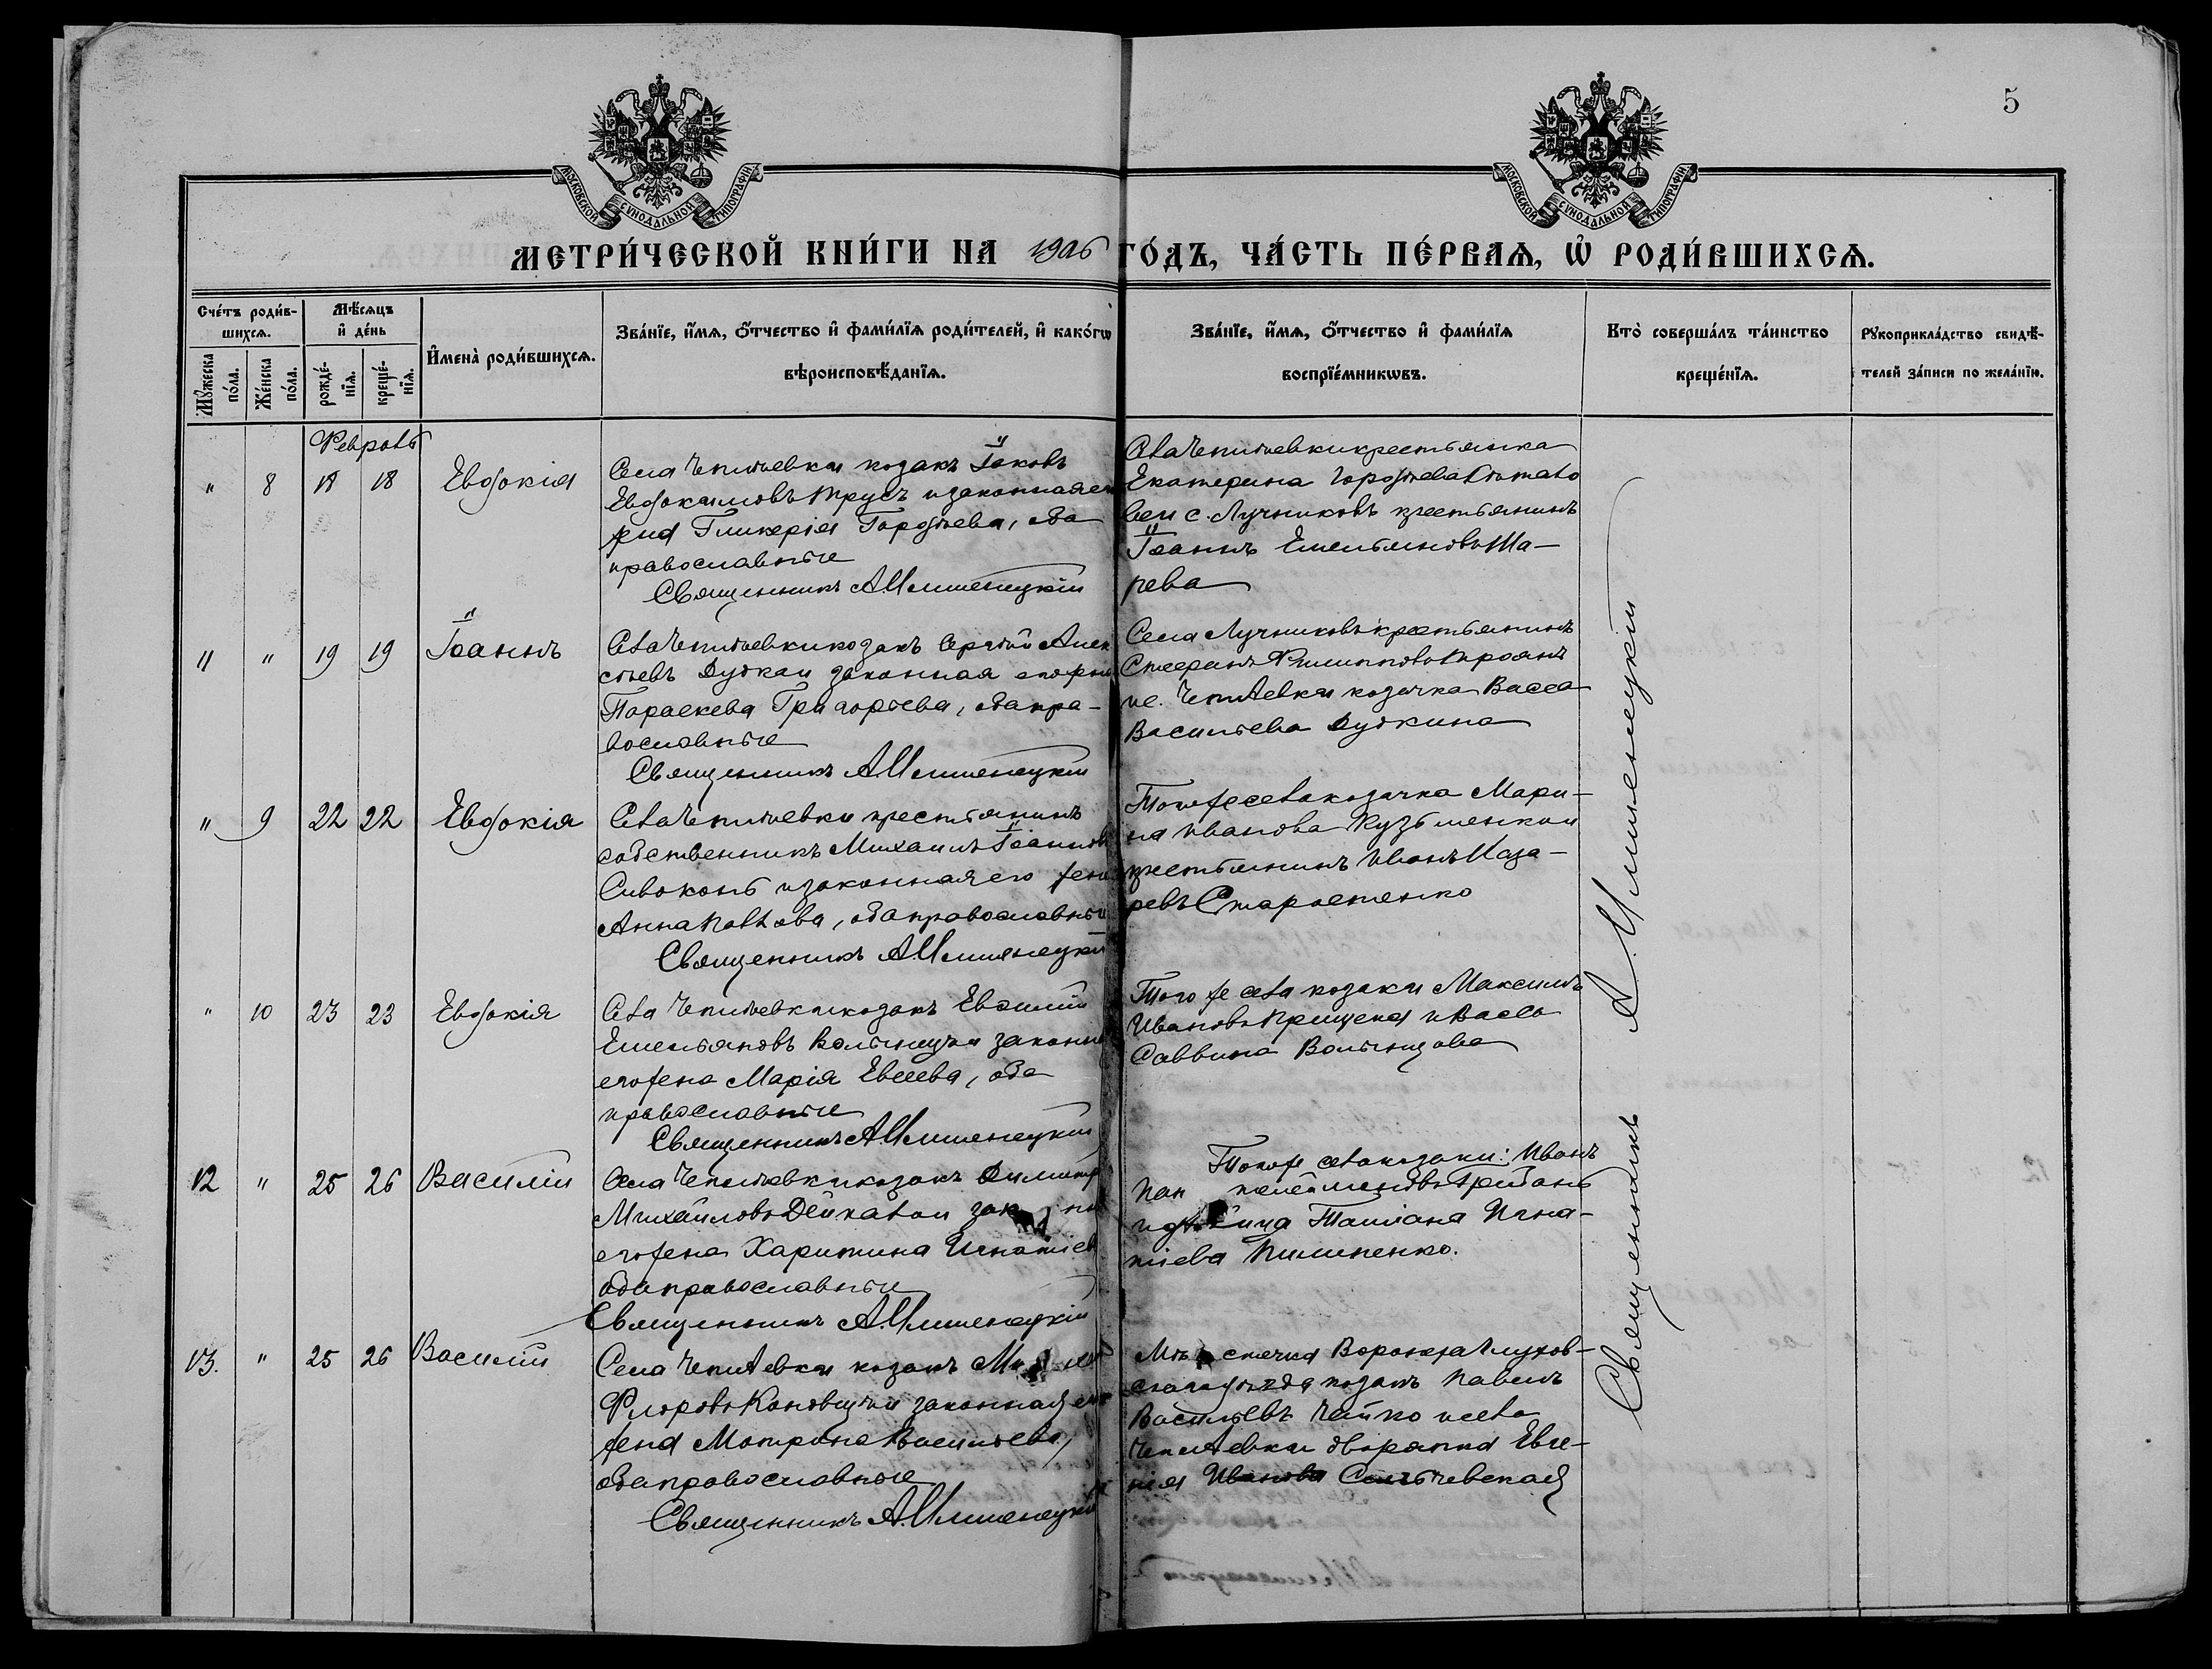 МОСКОВСКОЙ СѴНОДАЛЬНОЙ ТИПОГРАФІИ
МОСКОВСКОЙ СѴНОДАЛЬНОЙ ТИПОГРАФІИ
5
МЕТРИ́ЧЕСКОЙ КНИ́ГИ НА 1906 ГО́ДЪ, ЧА́СТЬ ПЕ́РВАѦ, Ѡ҆ РОДИ́ВШИХСѦ.
Сче́тъ роди́в-
шихсѧ.
Мꙋ́жеска по́ла.
Же́нска по́ла.
Мѣ́сѧцъ
и҆ де́нь
рожде́-
нїѧ.
креще́-
нїѧ.
И҆мена̀ роди́вшихсѧ.
Зва́нїе, и҆́мѧ, ѻ҆́тчество и҆ фами́лїѧ роди́телей, и҆ како́гѡ
вѣроисповѣ́данїѧ.
Зва́нїе, и҆́мѧ, ѻ҆́тчество и҆ фами́лїѧ
воспрїе́мникѡвъ.
Кто̀ соверша́лъ та́инство
креще́нїѧ.
Рꙋкоприкла́дство свидѣ́-
телей за́писи по жела́нїю.
Февраль
" 8 18 18 Евдокія
Села Чепліевки козакъ Іаковъ
Евдокимовъ Трусъ и законная его
жена Гликерія Гордѣева, оба
православные
Священникъ А.
Села Чепліевки крестьянка
Екатерина Гордѣева
и с. Лучниковъ крестьянинъ
Іоаннъ Емельяновъ Ша-
рева
11 " 19 19 Іоаннъ
Села Чепліевки козакъ Сергій Алек
сѣевъ Дудка и законная его жена
Параскева Григорьева, оба пра-
вославные
Священникъ А.
Села Лучниковъ крестьянинъ
Стефанъ Филипповъ
и с. Чепліевки козачка Васса
Васильева Дудкина
" 9 22 22 Евдокія
Села Чепліевки крестьянинъ
собственникъ Михаилъ Іоанновъ
Сивоконь и законная его жена
Анна Павлова, оба православные
Священникъ А.
Того же села козачка Мари-
на Иванова Кузьменко и
крестьянинъ Иванъ Наза-
ревъ Старостенко
" 10 23 23 Евдокія
Села Чепліевки козакъ Евѳимій
Емельяновъ Волынец и законная
его жена Марія Евсеева, оба
православные
Священникъ А.
Того же села козаки Максимъ
Ивановъ Прищепа и Васса
Саввина Волынцова
12 " 25 26 Василій
Села Чепліевки козакъ Димитр
Михайловъ Дейкало и зак
его жена Харитина Игнатіев
оба православные
Священникъ А.
Того же села козаки: Иванъ
Пан Грибанъ
и Татіана Игна-
тіева Пилипенко.
13. " 25 26 Василій
Села Чепліевки козакъ
Флоровъ Коновец и законная его
жена Матрона Васильева,
оба православные
Священникъ А.
Мѣстечка Воронежа Глухов-
скаго уѣзда козакъ Павелъ
Васильевъ Чайко и села
Чепліевки дворянка Евге-
нія Иванова
Священникъ А.